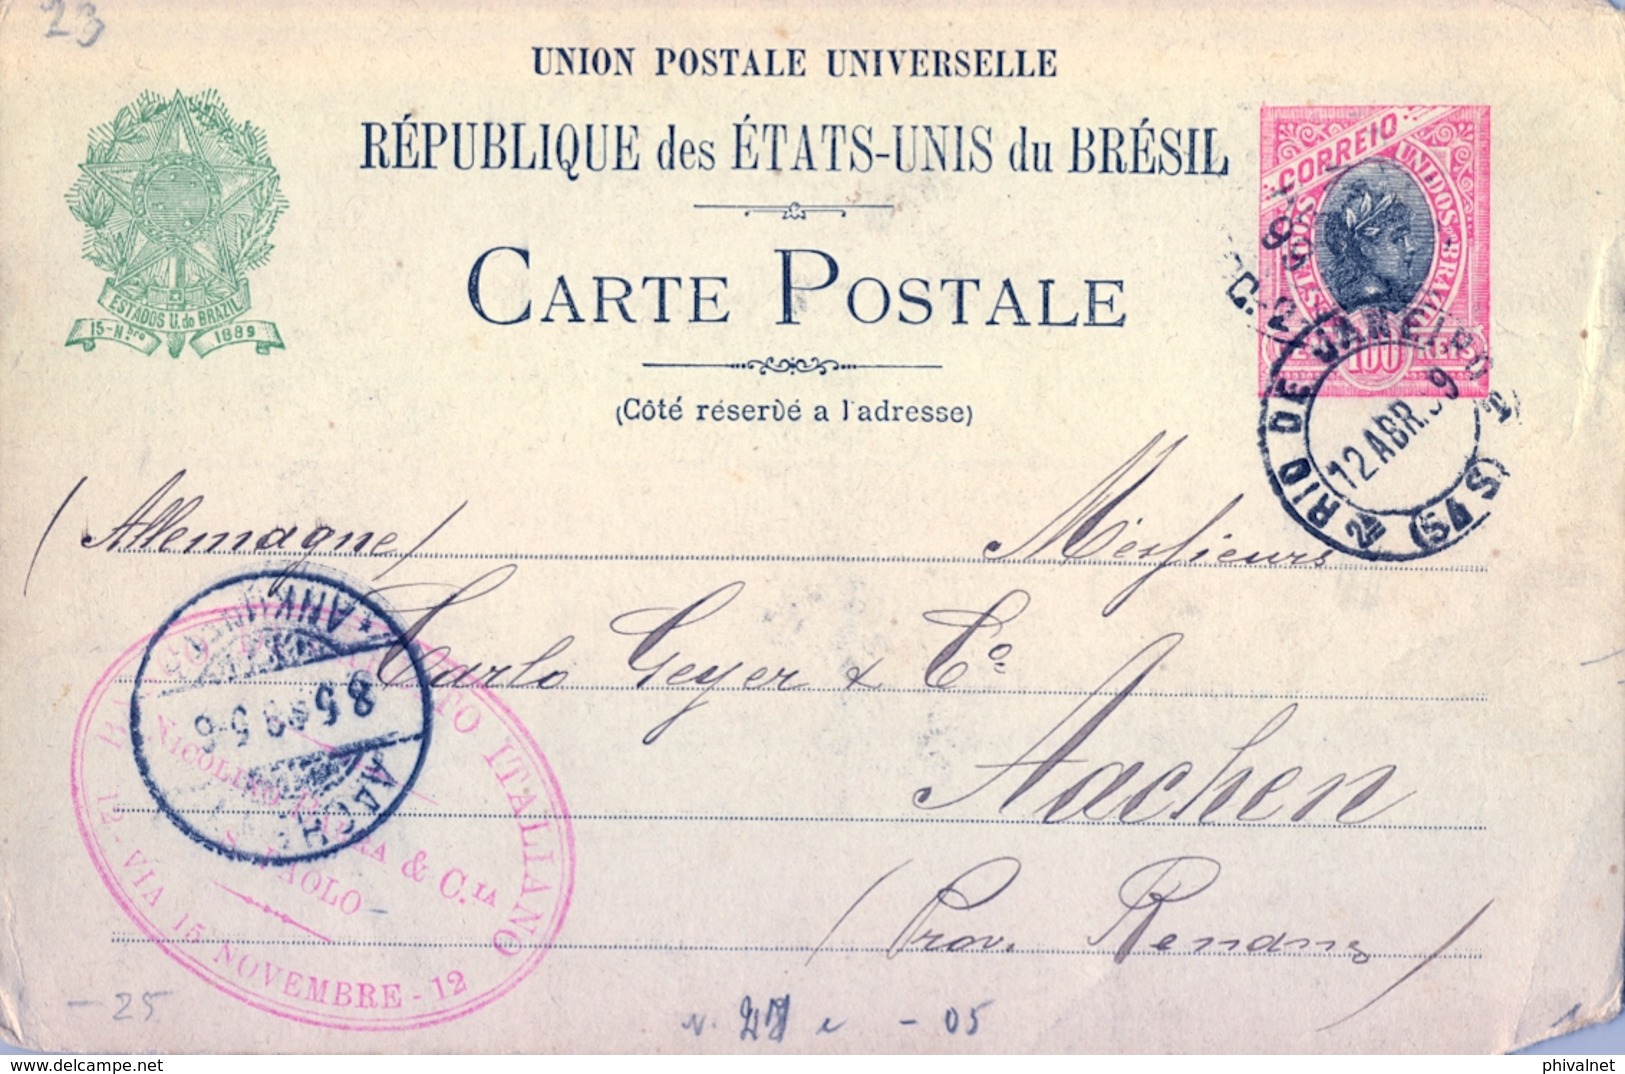 23
UNION POSTALE UNIVERSELLE
RÉPUBLIQUE des ÉTATS-UNIS du BRÉSIL
CARTE POSTALE
(Côté réservé a l'adresse)
ESTADOS U. do BRAZIL
15-N.bro 1889
CORREIO
ESTADOS UNIDOS BRAZIL
100 REIS
RIO DE JANEIRO
12 ABR. 99
2ª
(Allemagne) Messieurs
Carlo Geyer & Co.
Aachen
(Prov. Renana)
AACHEN
8 5 99 5-6
ANK
ITALIANO
NICOLINO & C.IA
S. PAOLO
12 - VIA 15 NOVEMBRE - 12
-25
- 05
delcampe.net
phivalnet